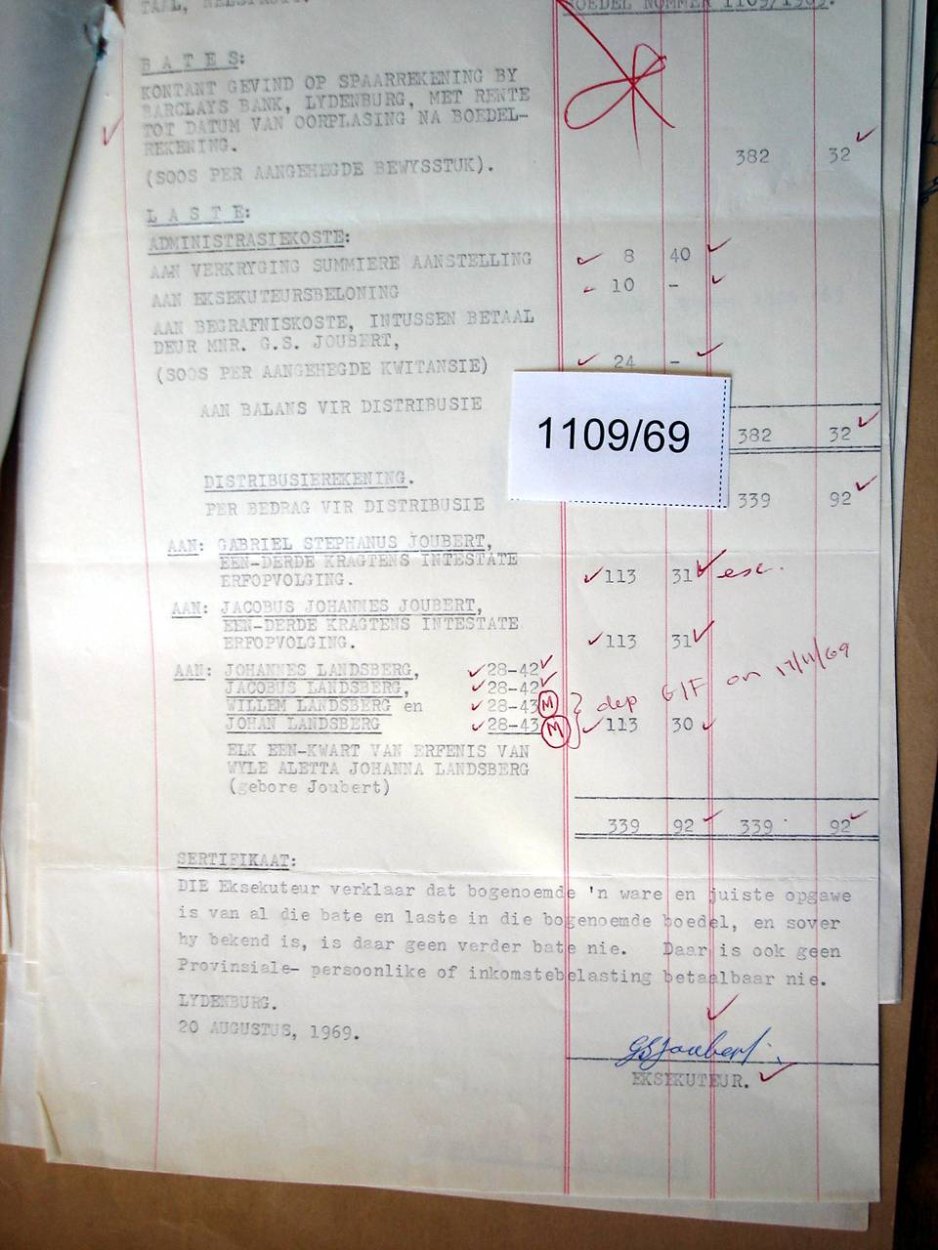 BOEDEL NOMMER 1109/1969.
B A T E S:
KONTANT GEVIND OP SPAARREKENING BY
BARCLAYS BANK, LYDENBURG, MET RENTE
TOT DATUM VAN OORPLASING NA BOEDEL-
REKENING.
(SOOS PER AANGEHEGDE BEWYSSTUK). 382 32
L A S T E:
ADMINISTRASIEKOSTE:
AAN VERKRYGING SUMMIERE AANSTELLING 8 40
AAN EKSEKUTEURSBELONING 10 -
AAN BEGRAFNISKOSTE, INTUSSEN BETAAL
DEUR MNR. G.S. JOUBERT,
(SOOS PER AANGEHEGDE KWITANSIE) 24 -
AAN BALANS VIR DISTRIBUSIE
1109/69
382 32
DISTRIBUSIEREKENING.
PER BEDRAG VIR DISTRIBUSIE 339 92
AAN: GABRIEL STEPHANUS JOUBERT,
EEN-DERDE KRAGTENS INTESTATE
ERFOPVOLGING. 113 31 esc.
AAN: JACOBUS JOHANNES JOUBERT,
EEN-DERDE KRAGTENS INTESTATE
ERFOPVOLGING. 113 31
AAN: JOHANNES LANDSBERG, 28-42
JACOBUS LANDSBERG, 28-42
WILLEM LANDSBERG en 28-43 M dep G/F on 17/11/69
JOHAN LANDSBERG 28-43 M 113 30
ELK EEN-KWART VAN ERFENIS VAN
WYLE ALETTA JOHANNA LANDSBERG
(gebore Joubert)
339 92 339 92
SERTIFIKAAT:
DIE Eksekuteur verklaar dat bogenoemde 'n ware en juiste opgawe
is van al die bate en laste in die bogenoemde boedel, en sover
hy bekend is, is daar geen verder bate nie. Daar is ook geen
Provinsiale- persoonlike of inkomstebelasting betaalbaar nie.
LYDENBURG.
20 AUGUSTUS, 1969.
GSJoubert
EKSEKUTEUR.